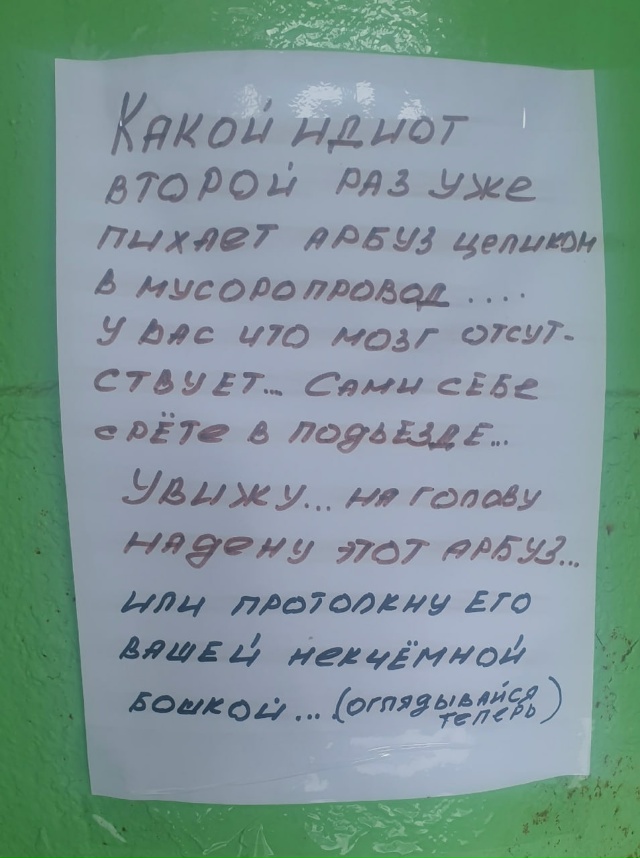 Какой идиот
второй раз уже
пихает арбуз целиком
в мусоропровод....
у вас что мозг отсут-
ствует... Сами себе
срёте в подьезде...
Увижу... на голову
надену этот арбуз...
или протолкну его
вашей некчёмной
бошкой... (оглядывайся
теперь)